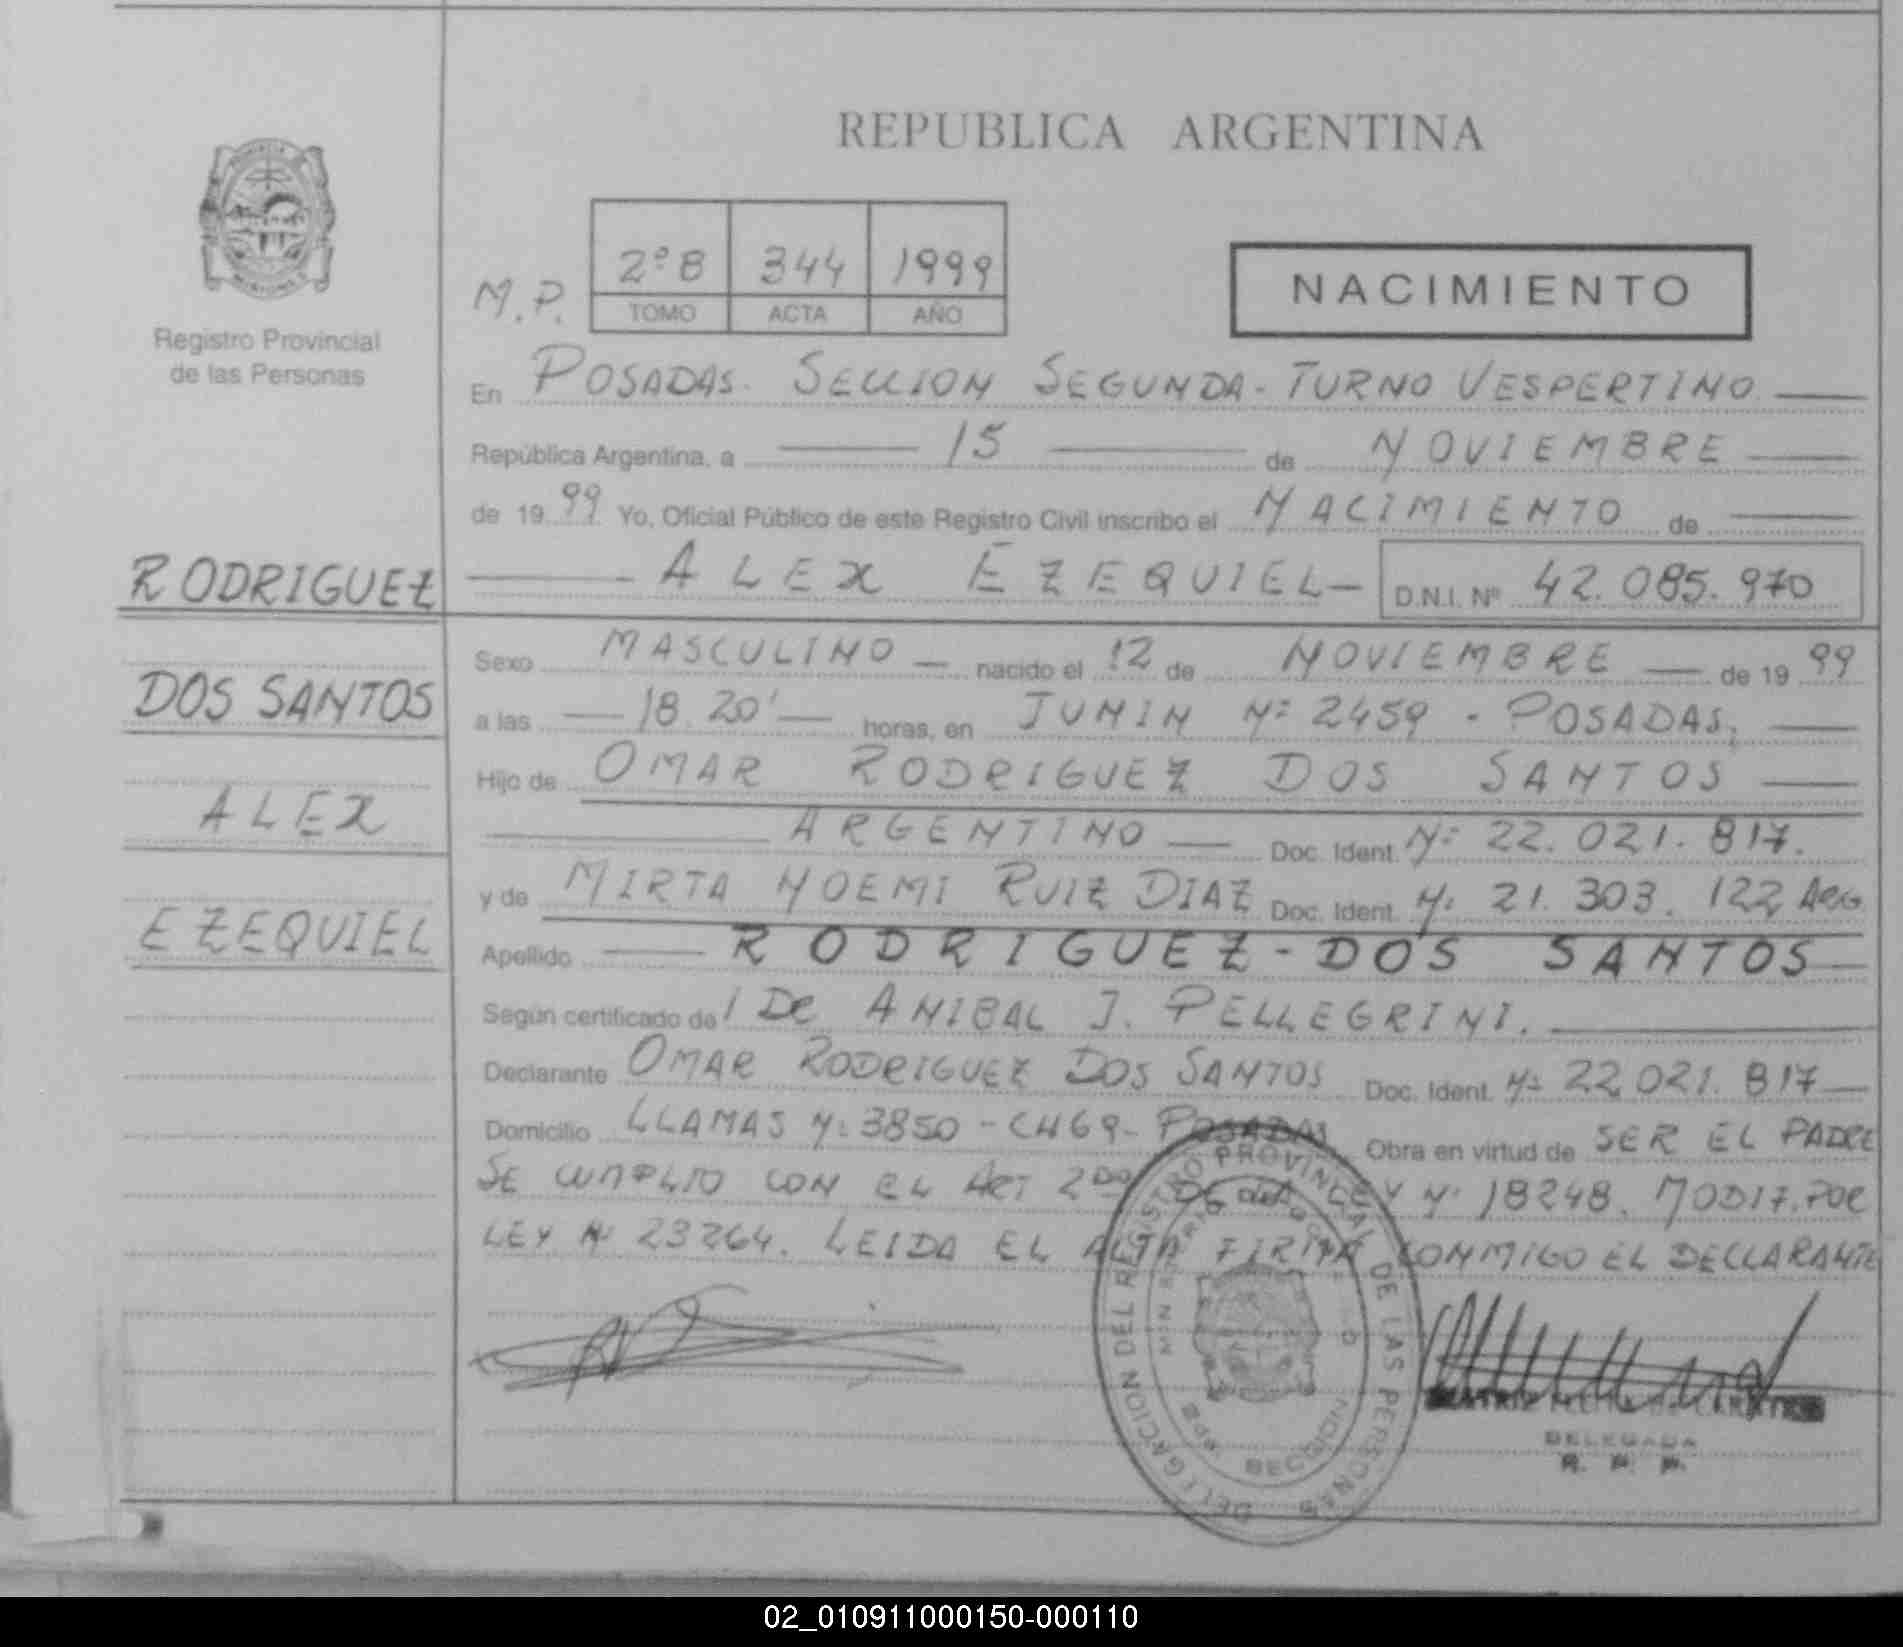 REPUBLICA ARGENTINA
Registro Provincial
de las Personas
M.P.
2º B 344 1999
TOMO ACTA AÑO
NACIMIENTO
En POSADAS. SECCION SEGUNDA - TURNO VESPERTINO
República Argentina, a 15 de NOVIEMBRE
de 19 99 Yo, Oficial Público de este Registro Civil inscribo el NACIMIENTO de
ALEX EZEQUIEL - D.N.I. Nº 42.085.970
RODRIGUEZ
DOS SANTOS
ALEX
EZEQUIEL
Sexo MASCULINO nacido el 12 de NOVIEMBRE de 19 99
a las 18.20' horas, en JUNIN Nº 2459 - POSADAS,
Hijo de OMAR RODRIGUEZ DOS SANTOS
ARGENTINO Doc. Ident. Nº 22.021.817.
y de MIRTA NOEMI RUIZ DIAZ Doc. Ident. Nº 21.303.122 ARG
Apellido RODRIGUEZ - DOS SANTOS
Según certificado de l DR ANIBAL J. PELLEGRINI.
Declarante OMAR RODRIGUEZ DOS SANTOS Doc. Ident. Nº 22.021.817
Domicilio LLAMAS Nº 3850 - CH69 - POSADAS Obra en virtud de SER EL PADRE
SE CUMPLIO CON EL ART 2DO DE LA LEY Nº 18248. MODIF. POR
LEY Nº 23264. LEIDA EL ACTA FIRMA CONMIGO EL DECLARANTE
DELEGACION DEL REGISTRO PROVINCIAL DE LAS PERSONAS
DELEGADA
R. P. P.
02_010911000150-000110